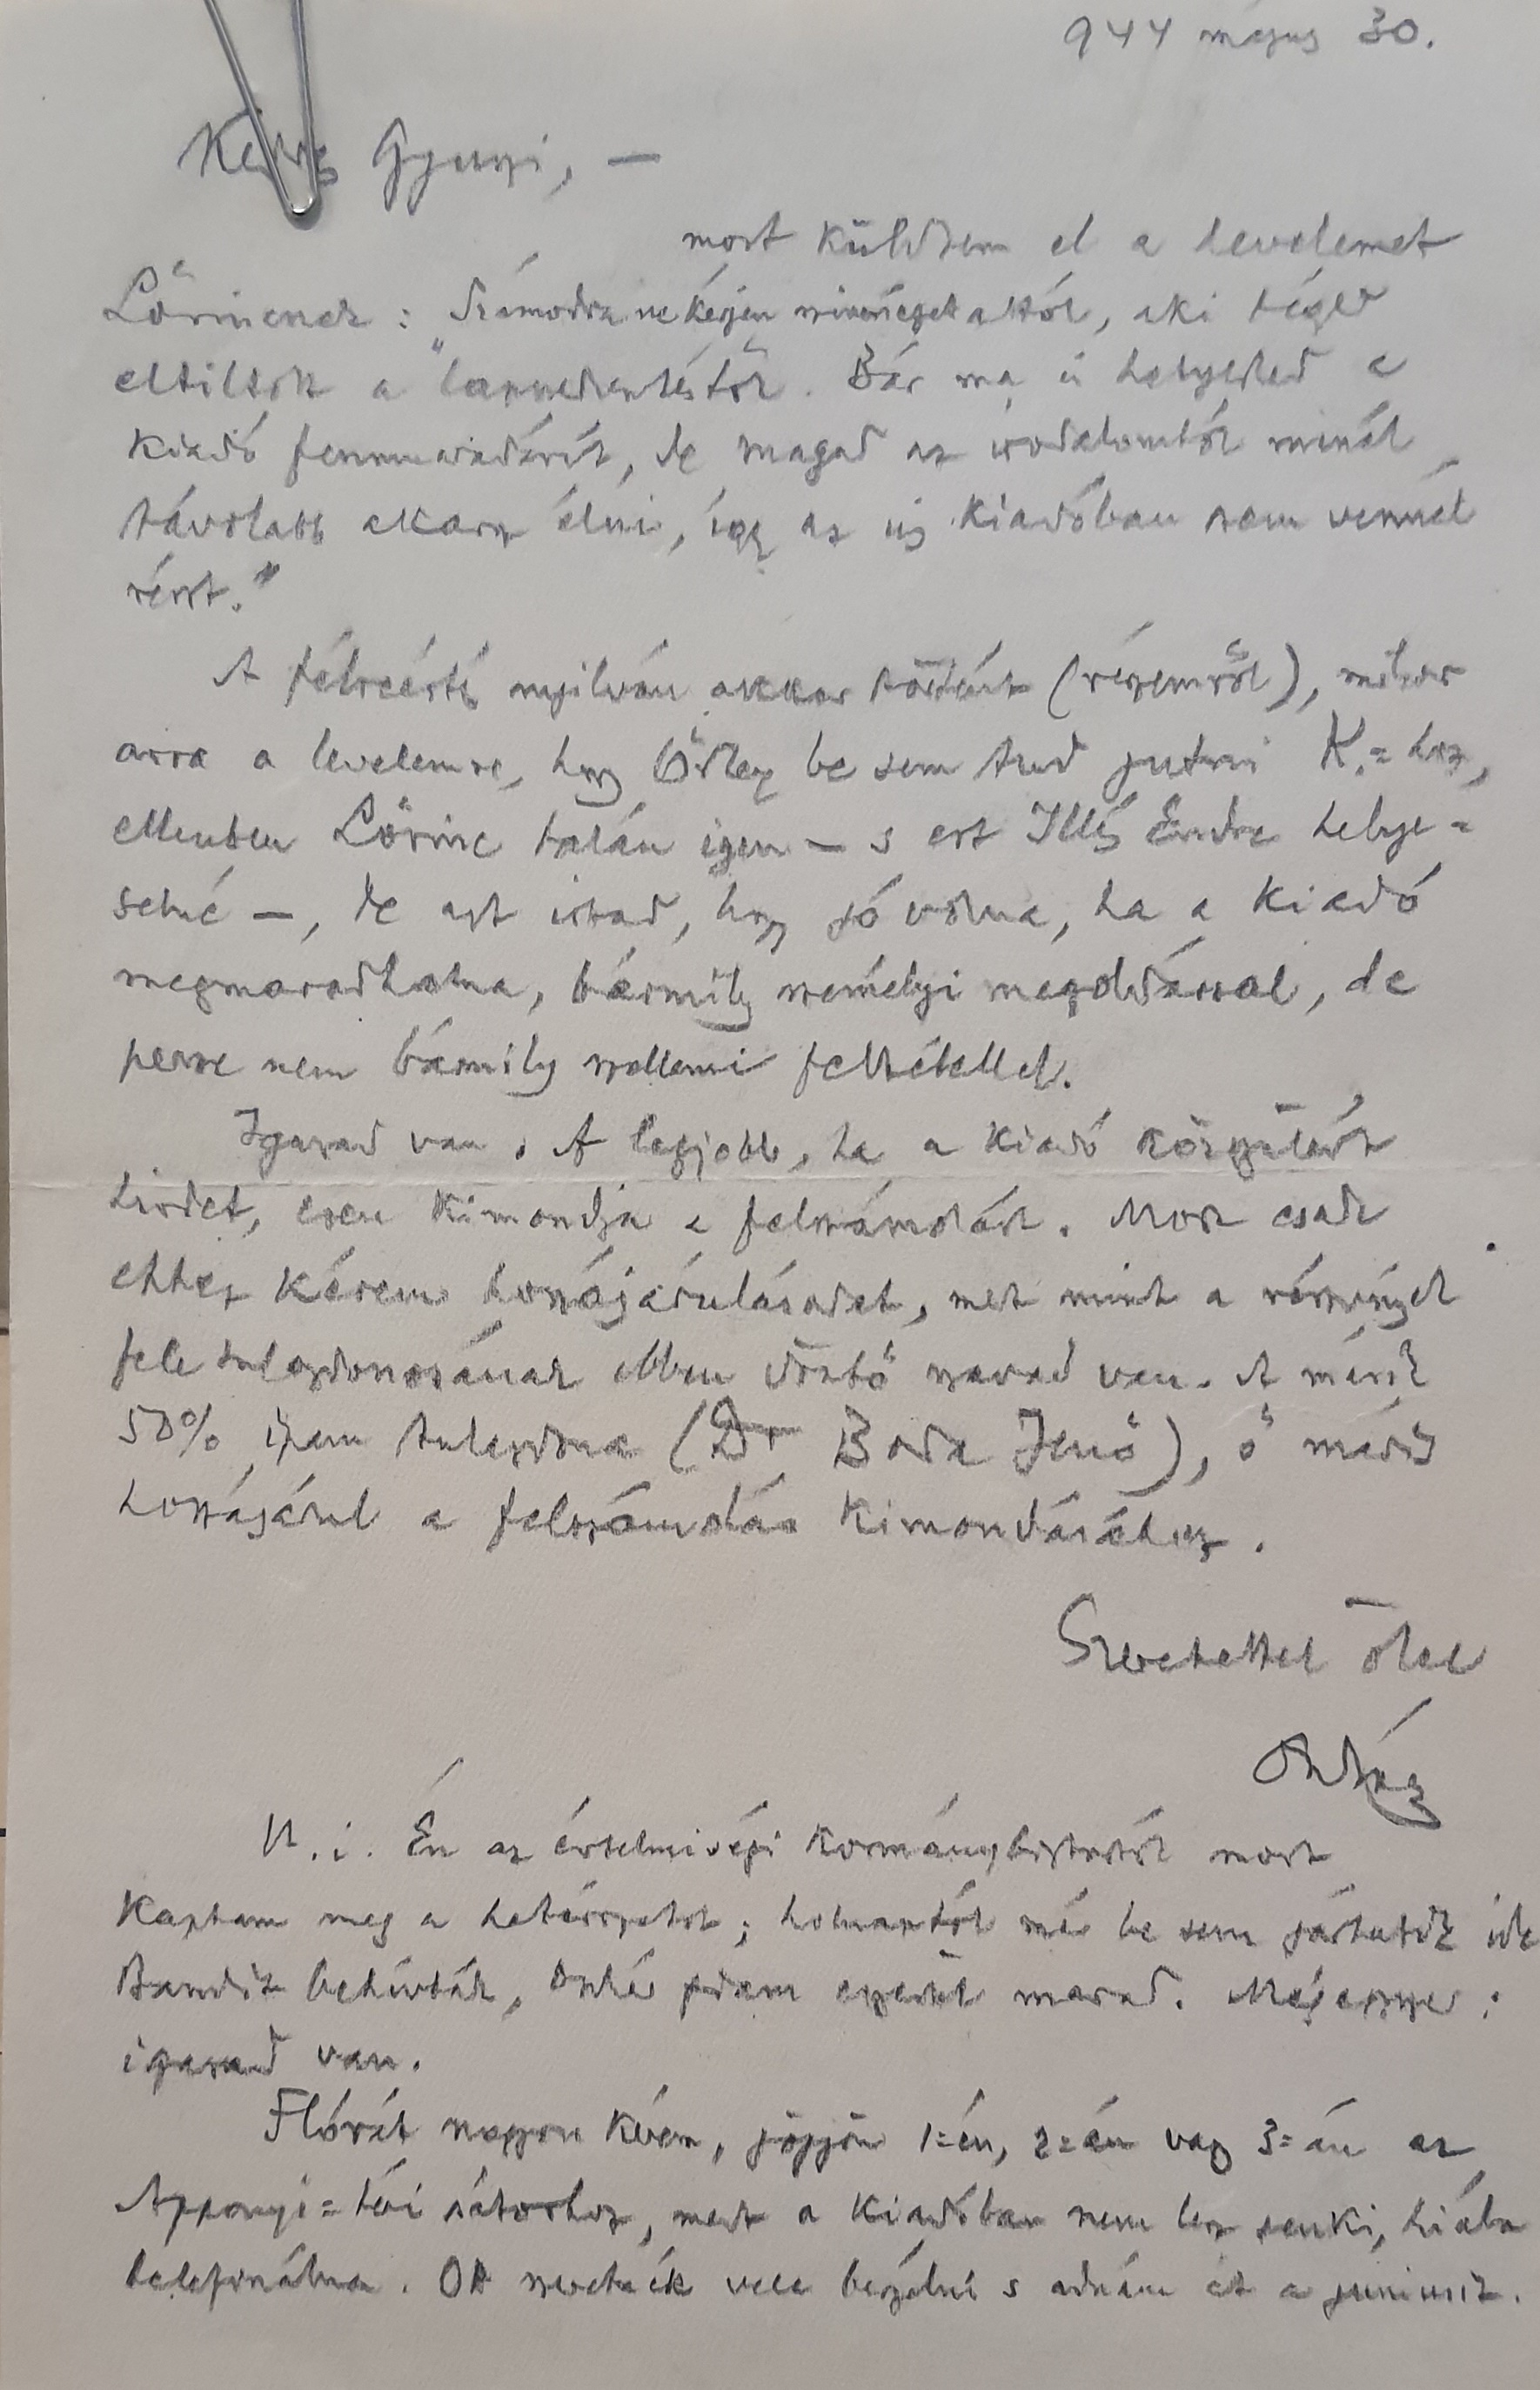 944 május 30.
Kedves Gyuszi, —
most küldtem el a levelemet
Lőrincnek: "Számodra ne kérjen a től, aki téged
eltiltott a lapszerkesztéstől. Bár ma is helyesled a
kiadó fennmaradását, de magad az irodalomtól minél
távolabb akarsz élni, így az új kiadóban sem vennél
részt."
A félreértés nyilván akkor történt (részemről), mikor
arra a levelemre, hogy Örley be sem tud jutni K.=hoz,
ellenben Lőrinc talán igen — s ezt Illés Endre helye=
selné —, te azt írtad, hogy jó volna, ha a kiadó
megmaradhatna, bármily személyi megoldással, de
persze nem bármily szellemi feltétellel.
Igazad van. A legjobb, ha a kiadó közgyűlést
hirdet, ezen kimondja a felszámolást. Most csak
ehhez kérem hozzájárulásodat, mert mint a részvények
fele tulajdonosának ebben döntő szavad van. A másik
50% ipam tulajdona (Dr Boda Jenő), ő máris
hozzájárul a felszámolás kimondásához.
Szeretettel ölel
András
U. i. Én az értelmiségi kormánybiztostól most
kaptam meg a határozatot; holnaptól már be sem járhatok ide
behívták, ipam egyedül marad. Mégegyszer:
igazad van.
Flórát nagyon kérem, jöjjön 1=én, 2=án vagy 3=án az
Apponyi=téri sátorhoz, mert a kiadóban nem lesz senki, hiába
telefonálna. Ott szeretnék vele beszélni s adnám át a juniusit.